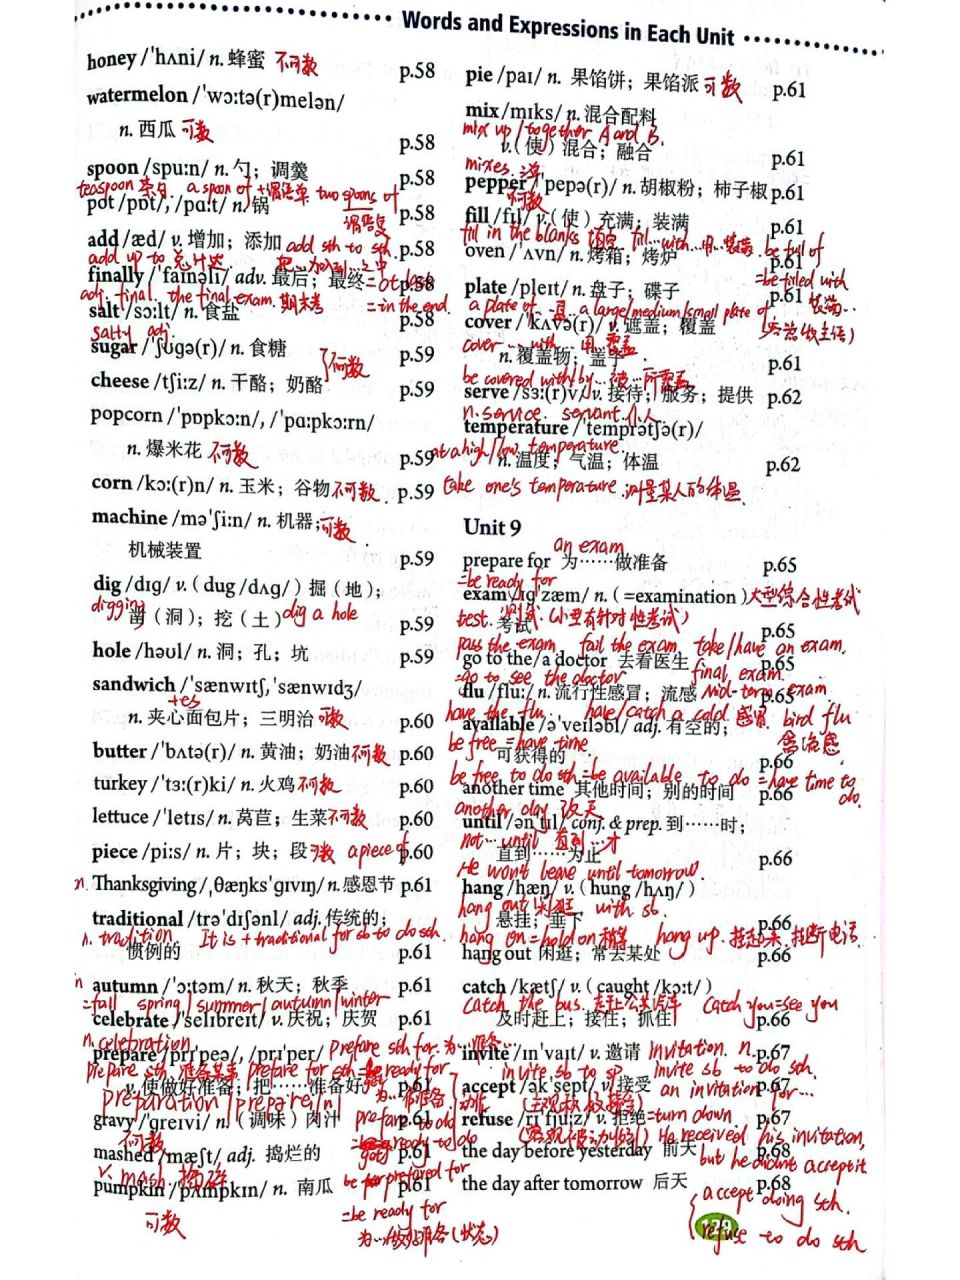 Words and Expressions in Each Unit
honey /ˈhʌni/ n. 蜂蜜 不可数 p.58
watermelon /ˈwɔːtə(r)melən/
n. 西瓜 可数 p.58
spoon /spuːn/ n. 勺；调羹 p.58
teaspoon 茶匙 a spoon of + 谓语单 two spoons of 谓语复
pot /pɒt/, /pɑːt/ n. 锅 p.58
add /æd/ v. 增加；添加 add sth to sth p.58
add up to 总计达 把…加入到…之中
finally /ˈfaɪnəli/ adv. 最后；最终 = at last p.58
adj. final. the final exam. 期末考 = in the end.
salt /sɔːlt/ n. 食盐 p.58
salty adj.
sugar /ˈʃʊɡə(r)/ n. 食糖 不可数 p.59
cheese /tʃiːz/ n. 干酪；奶酪 p.59
popcorn /ˈpɒpkɔːn/, /ˈpɑːpkɔːrn/
n. 爆米花 不可数 p.59
corn /kɔː(r)n/ n. 玉米；谷物 不可数 p.59
machine /məˈʃiːn/ n. 机器； 可数
机械装置 p.59
dig /dɪɡ/ v.（dug /dʌɡ/）掘（地）；
digging 凿（洞）；挖（土） dig a hole p.59
hole /həʊl/ n. 洞；孔；坑 p.59
sandwich /ˈsænwɪtʃ, ˈsænwɪdʒ/
+es
n. 夹心面包片；三明治 可数 p.60
butter /ˈbʌtə(r)/ n. 黄油；奶油 不可数 p.60
turkey /ˈtɜː(r)ki/ n. 火鸡 不可数 p.60
lettuce /ˈletɪs/ n. 莴苣；生菜 不可数 p.60
piece /piːs/ n. 片；块；段 可数 a piece of p.60
n. Thanksgiving /ˌθæŋksˈɡɪvɪŋ/ n. 感恩节 p.61
traditional /trəˈdɪʃənl/ adj. 传统的；
n. tradition It is + traditional for sb to do sth.
惯例的 p.61
n autumn /ˈɔːtəm/ n. 秋天；秋季 p.61
=fall spring/summer/autumn/winter
celebrate /ˈselɪbreɪt/ v. 庆祝；庆贺 p.61
n. celebration
prepare /prɪˈpeə/, /prɪˈper/ prepare sth for. 为…准备…
prepare sth. 准备某事 prepare for sth = be ready for
v. 使做好准备；把……准备好 p.61
preparation
gravy /ˈɡreɪvi/ n.（调味）肉汁 p.61
不可数 prepare to do
mashed /mæʃt/ adj. 捣烂的 p.61
v. mash 捣碎 be prepared for
pumpkin /ˈpʌmpkɪn/ n. 南瓜 p.61
可数 = be ready for
为…做好准备（状态）
pie /paɪ/ n. 果馅饼；果馅派 可数 p.61
mix /mɪks/ n. 混合配料
mix up / together A and B.
v.（使）混合；融合 p.61
mixes
pepper /ˈpepə(r)/ n. 胡椒粉；柿子椒 p.61
不可数
fill /fɪl/ v.（使）充满；装满 p.61
fill in the blanks 填空 fill…with…用…装满. be full of
oven /ˈʌvn/ n. 烤箱；烤炉 p.61
=be filled with
plate /pleɪt/ n. 盘子；碟子 p.61
a plate of 一盘… a large/medium/small plate of
cover /ˈkʌvə(r)/ v. 遮盖；覆盖
cover … with … 用…覆盖
n. 覆盖物；盖子 p.61
be covered with/by … 被…所覆盖
serve /sɜː(r)v/ v. 接待；服务；提供 p.62
n. service. servant 仆人
temperature /ˈtemprətʃə(r)/
at a high/low temperature.
n. 温度；气温；体温 p.62
take one's temperature 测量某人的体温
Unit 9
an exam
prepare for 为……做准备 p.65
=be ready for
exam /ɪɡˈzæm/ n.（=examination）大型综合性考试
test. 测试.（小型有针对性考试）
考试 p.65
pass the exam fail the exam take/have an exam.
go to the/a doctor 去看医生 p.65
=go to see the doctor final exam.
flu /fluː/ n. 流行性感冒；流感 mid-term exam p.65
have the flu. have/catch a cold 感冒 bird flu 禽流感
available /əˈveɪləbl/ adj. 有空的；
be free = have time
可获得的 p.66
be free to do sth = be available to do = have time to do.
another time 其他时间；别的时间 p.66
another day 改天
until /ənˈtɪl/ conj. & prep. 到……时；
not…until 直到…才
直到……为止 p.66
He won't leave until tomorrow.
hang /hæŋ/ v.（hung /hʌŋ/）
hang out 闲逛 with sb.
悬挂；垂下 p.66
hang on = hold on 稍等 hang up. 挂起来 挂断电话
hang out 闲逛；常去某处 p.66
catch /kætʃ/ v.（caught /kɔːt/）
catch the bus. 赶上公共汽车 Catch you = see you
及时赶上；接住；抓住 p.66
invite /ɪnˈvaɪt/ v. 邀请 invitation. n. p.67
invite sb to sp. invite sb to do sth.
accept /əkˈsept/ v. 接受 an invitation for… p.67
（主观积极接受）
refuse /rɪˈfjuːz/ v. 拒绝 =turn down. p.67
He received his invitation,
the day before yesterday 前天 p.68
but he didn't accept it
the day after tomorrow 后天 p.68
accept doing sth.
refuse to do sth